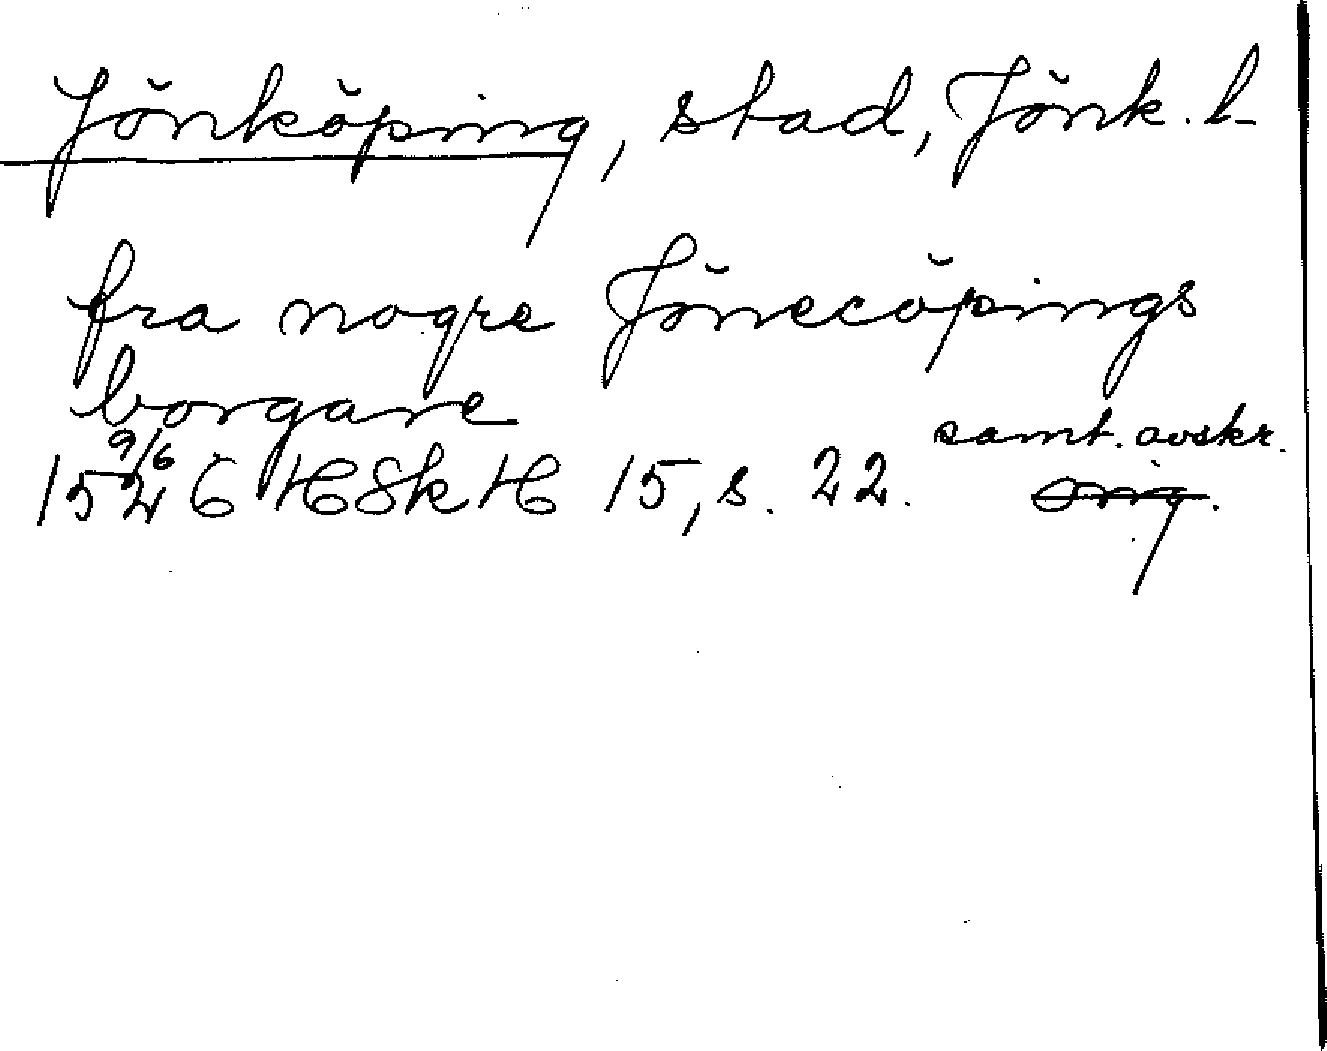 Jönköping, stad, Jönk. l.
fra nogre Jönecöpings
borgare
samt. avskr.
1526 9/6 HSkH 15, s. 22. orig.